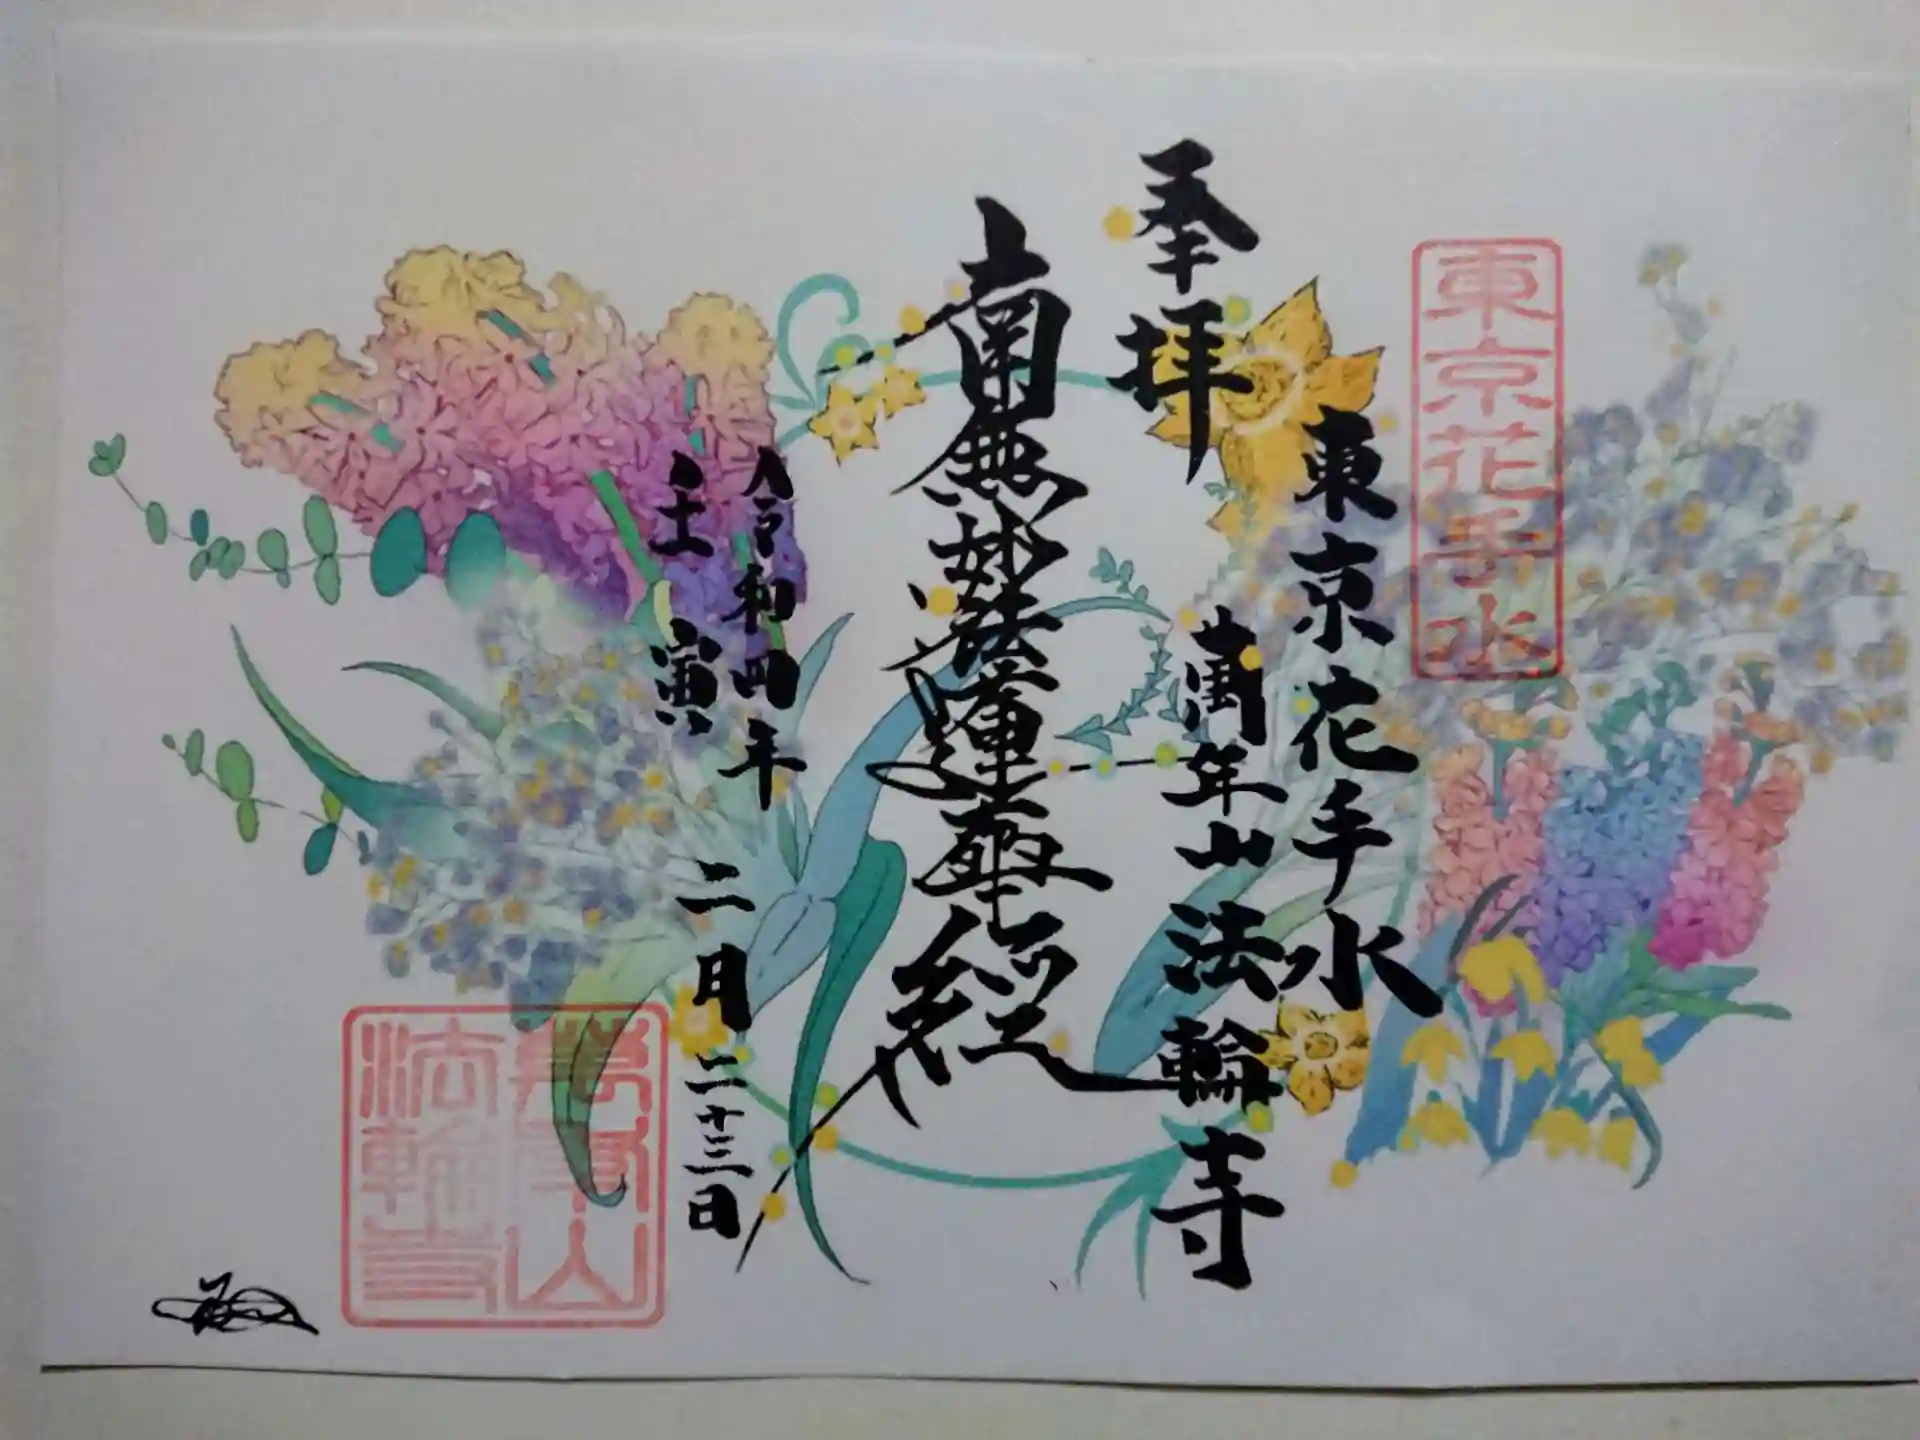 東京花手水
東京花手水
奉拝
萬年山法輪寺
南無妙法蓮華経
令和四年
壬寅
二月二十三日
萬年山
法輪寺